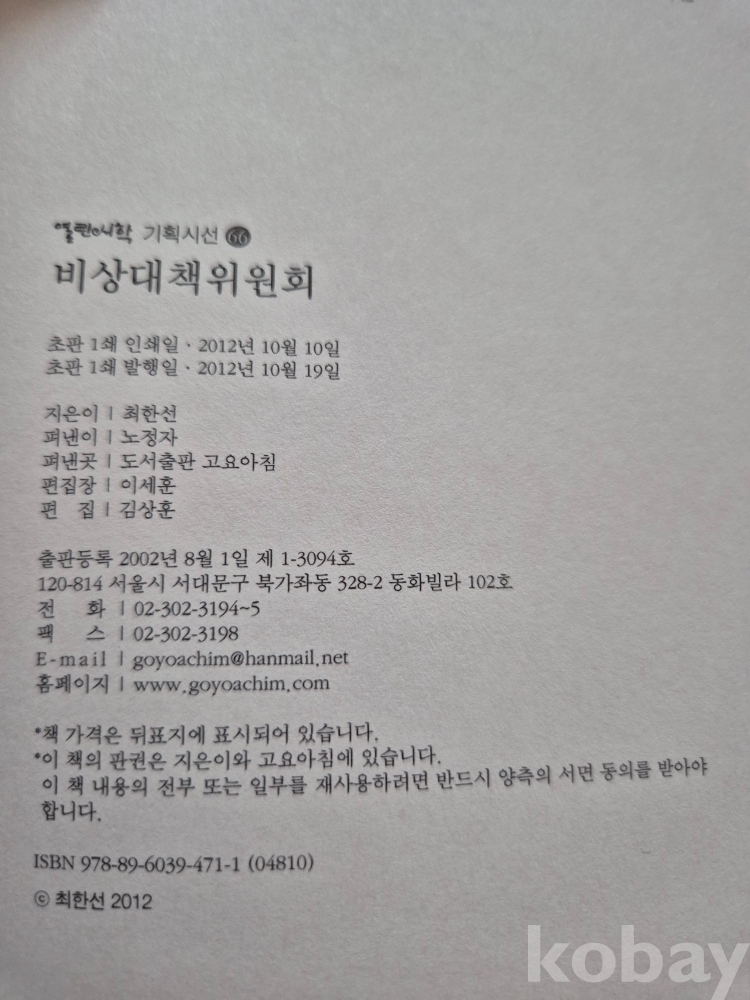 열린시학 기획시선 66
비상대책위원회
초판 1쇄 인쇄일 · 2012년 10월 10일
초판 1쇄 발행일 · 2012년 10월 19일
지은이 | 최한선
펴낸이 | 노정자
펴낸곳 | 도서출판 고요아침
편집장 | 이세훈
편 집 | 김상훈
출판등록 2002년 8월 1일 제 1-3094호
120-814 서울시 서대문구 북가좌동 328-2 동화빌라 102호
전 화 | 02-302-3194~5
팩 스 | 02-302-3198
E-mail | goyoachim@hanmail.net
홈페이지 | www.goyoachim.com
*책 가격은 뒤표지에 표시되어 있습니다.
*이 책의 판권은 지은이와 고요아침에 있습니다.
이 책 내용의 전부 또는 일부를 재사용하려면 반드시 양측의 서면 동의를 받아야
합니다.
ISBN 978-89-6039-471-1 (04810)
ⓒ 최한선 2012
kobay